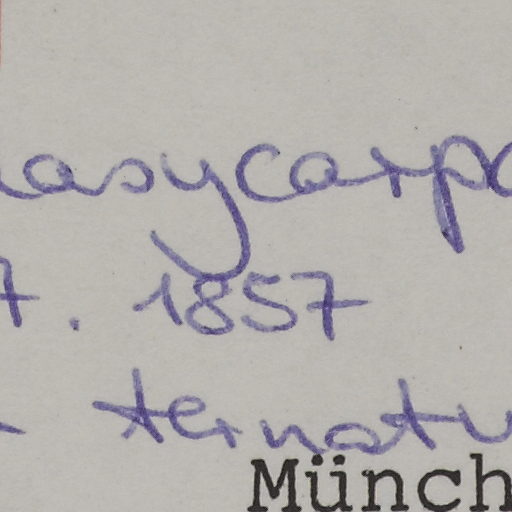 asycarpa
7. 1857
ternatu
Münch